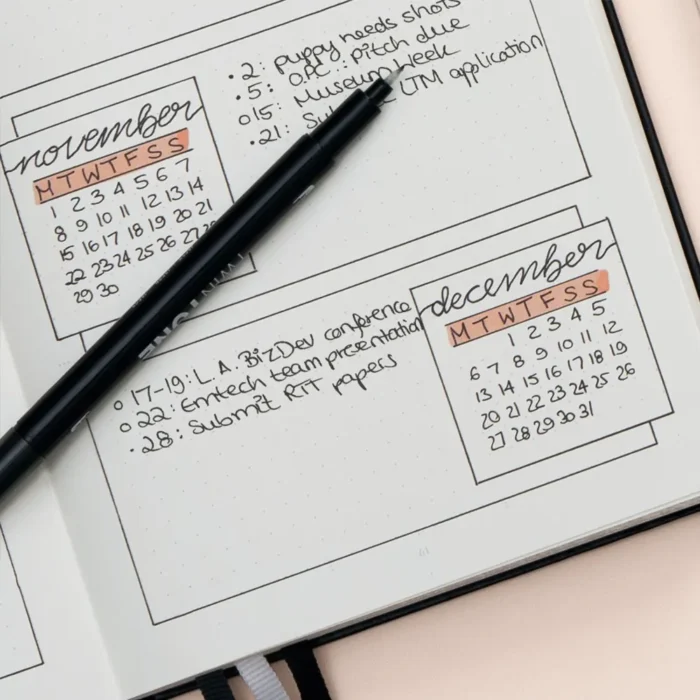 november
M T W T F S S
1 2 3 4 5 6 7
8 9 10 11 12 13 14
15 16 17 18 19 20 21
22 23 24 25 26 27 28
29 30
• 2: puppy needs shots
• 5: O.P.C.: pitch due
o 15: Museum Week
• 21: LTM application
TWIN TONE
december
M T W T F S S
1 2 3 4 5
6 7 8 9 10 11 12
13 14 15 16 17 18 19
20 21 22 23 24 25 26
27 28 29 30 31
o 17-19: L.A. BizDev conference
o 22: Emtech team presentation
• 28: Submit RIT papers